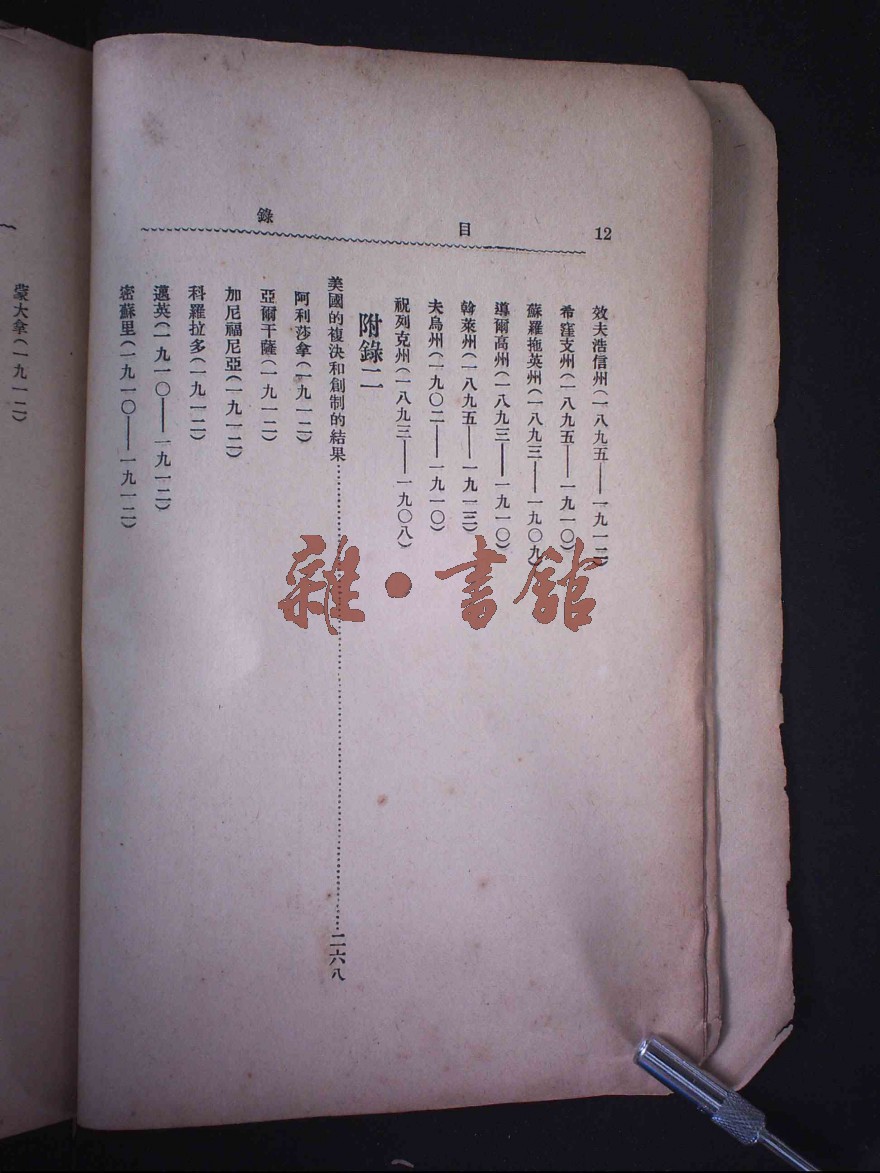 12
目錄
效夫浩信州(一八九五——一九一二)
希窪支州(一八九五——一九一〇)
蘇羅拖英州(一八九三——一九〇九)
導爾高州(一八九三——一九一〇)
翰萊州(一八九五——一九一三)
夫烏州(一九〇二——一九一〇)
祝列克州(一八九三——一九〇八)
附錄二
美國的複決和創制的結果……二六八
阿利莎拿(一九一二)
亞爾干薩(一九一二)
加尼福尼亞(一九一二)
科羅拉多(一九一二)
邁英(一九一〇——一九一二)
密蘇里(一九一〇——一九一二)
蒙大拿(一九一二)
雜·書館